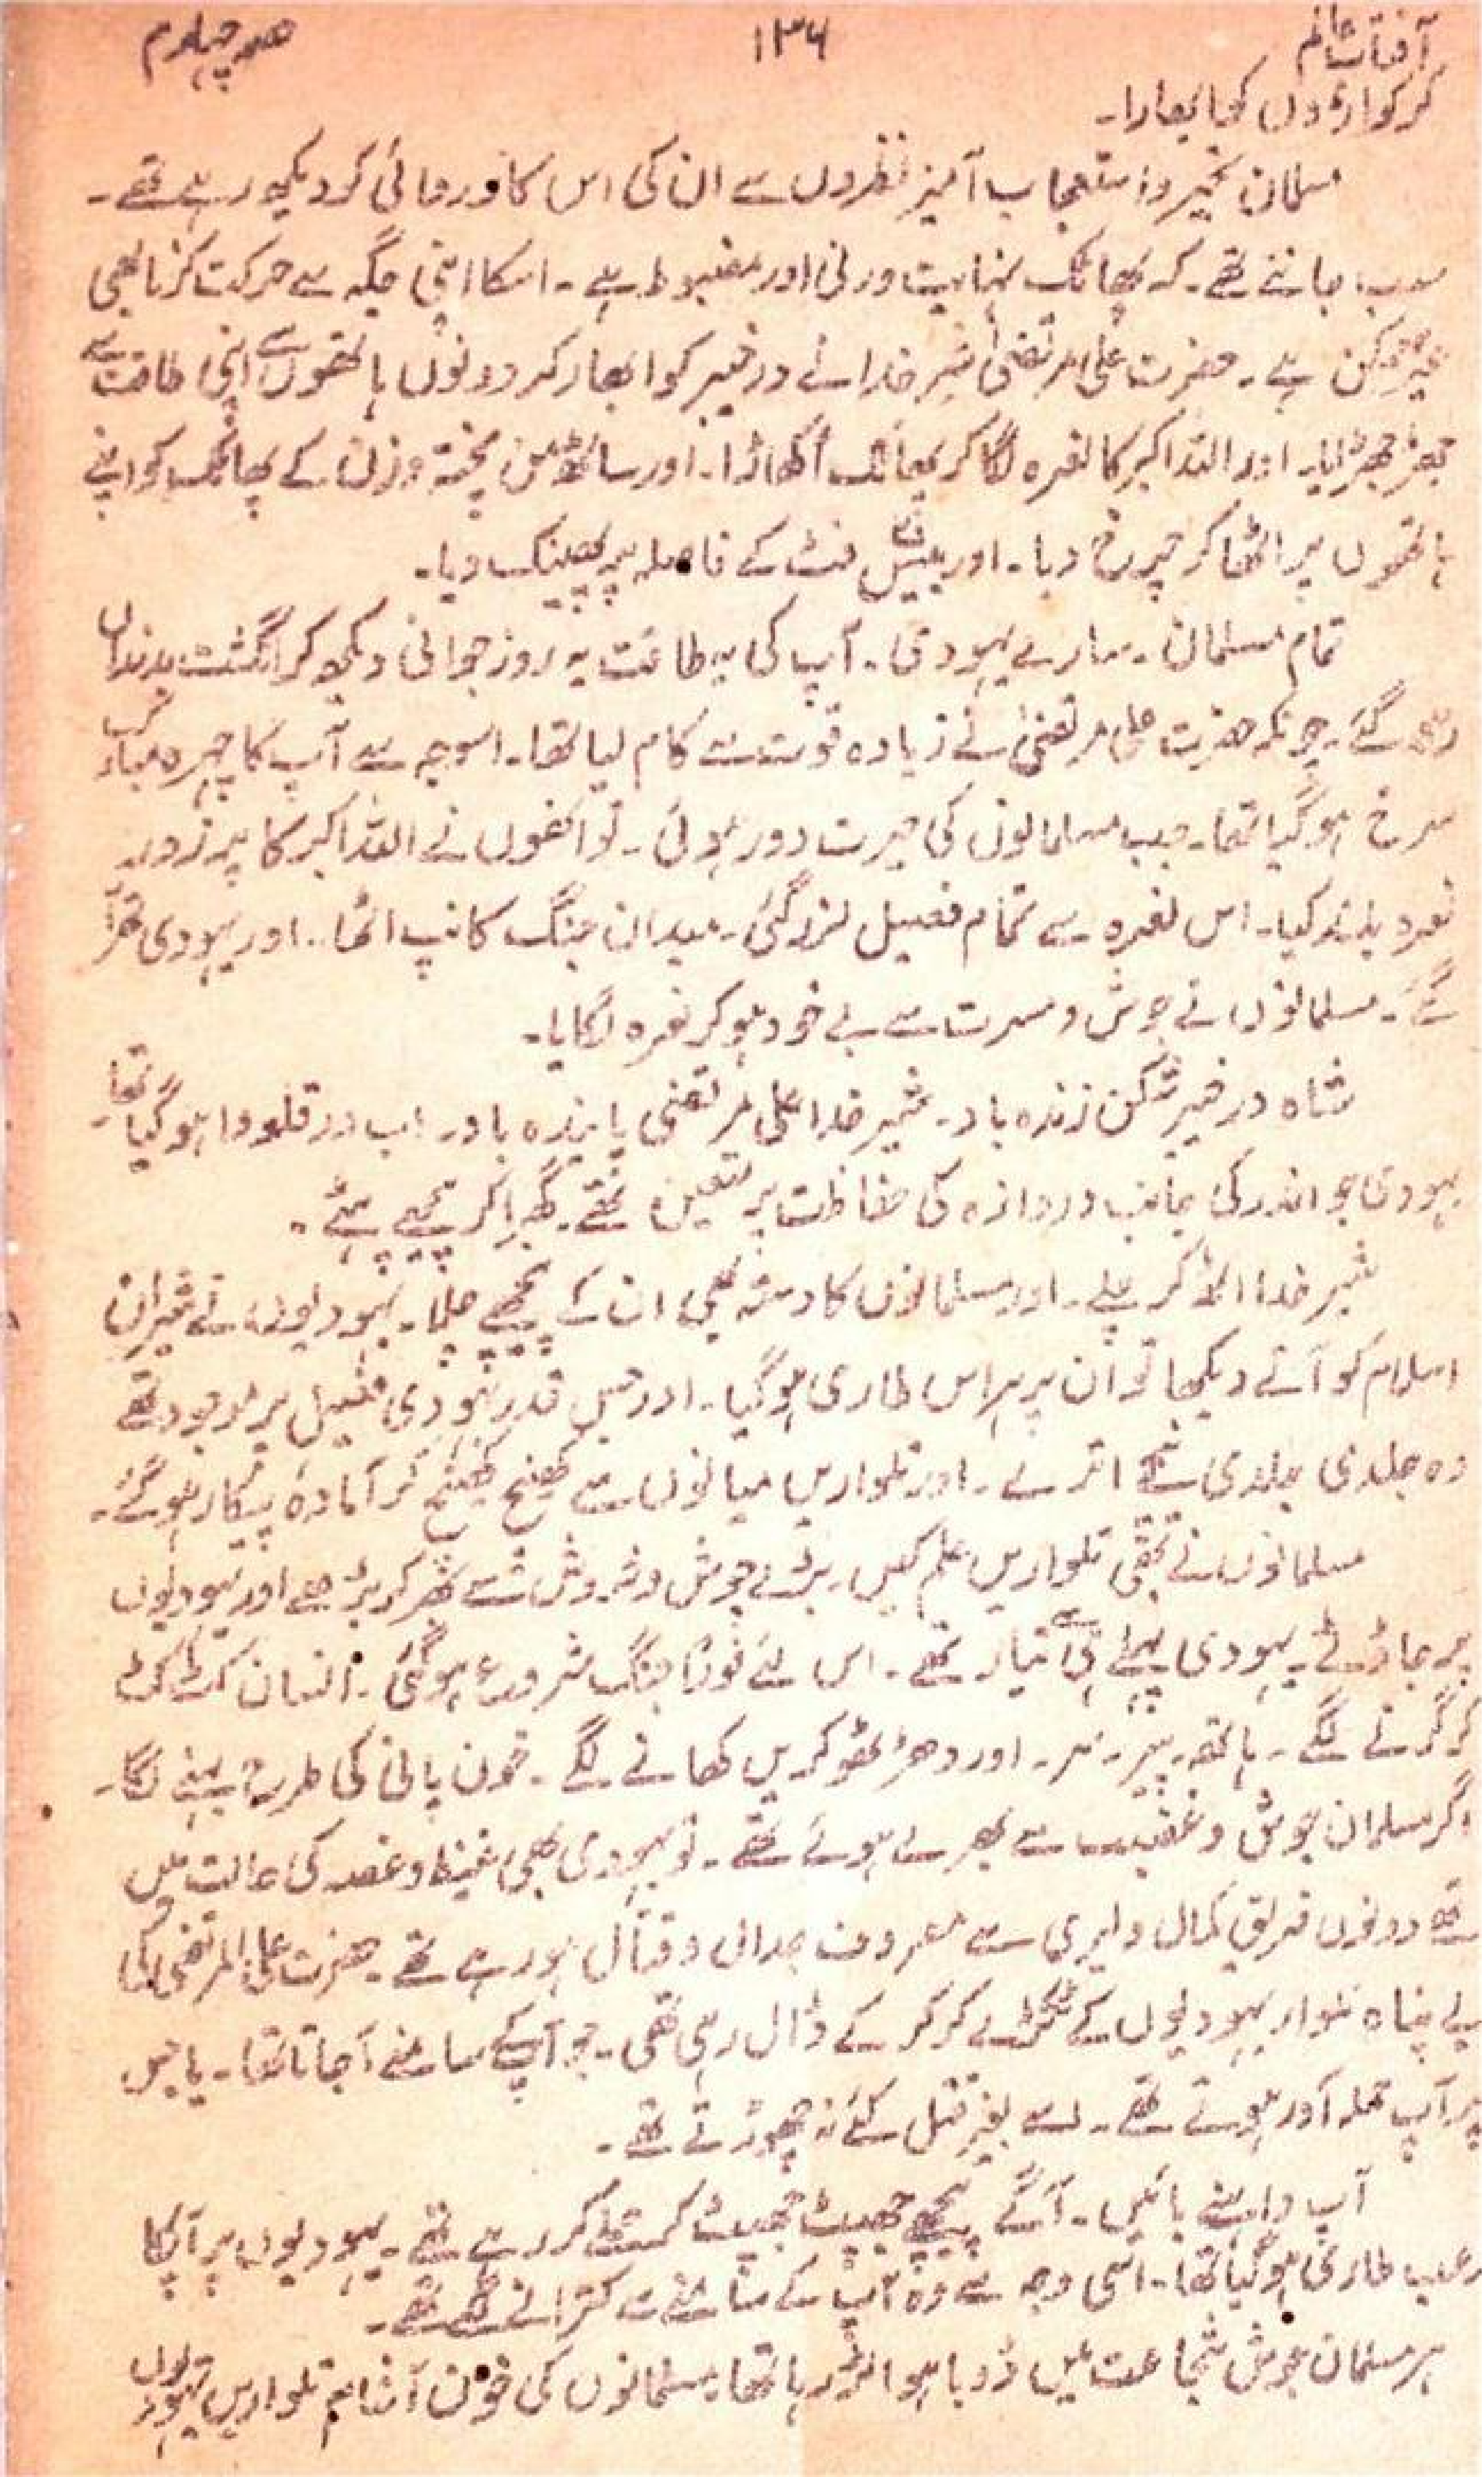 آفتاب عالم ۱۳۶ حصہ چہارم
کر کواڑوں کو ابھارا۔
مسلمان تحیر و استعجاب آمیز نظروں سے ان کی اس کارفرمائی کو دیکھ رہے تھے۔
سب جانتے تھے۔ کہ پھاٹک نہایت وزنی اور مضبوط ہے۔ اسکا اپنی جگہ سے حرکت کرنا بھی
غیر ممکن ہے۔ حضرت علی مرتضیٰ شیر خدا نے در خیبر کو ابھار کر دونوں ہاتھوں سے اپنی طاقت سے
جھڑجھڑایا۔ اور اللہ اکبر کا نعرہ لگا کر پھاٹک اُکھاڑا۔ اور ساٹھ من پختہ وزن کے پھاٹک کو اپنے
ہاتھوں پر اٹھا کر چرخ دیا۔ اور بیس فٹ کے فاصلہ پر پھینک دیا۔
تمام مسلمان۔ سارے یہودی۔ آپ کی یہ طاقت یہ روز جوانی دیکھ کر انگشت بدنداں
رہ گئے۔ چونکہ حضرت علی مرتضیٰ نے زیادہ قوت سے کام لیا تھا۔ اسوجہ سے آپ کا چہرہ مبارک
سرخ ہو گیا تھا۔ جب مسلمانوں کی حیرت دور ہوئی۔ تو انھوں نے اللہ اکبر کا پر زور
نعرہ بلند کیا۔ اس نعرہ سے تمام فصیل لرز گئی۔ میدان جنگ کانپ اٹھا۔ اور یہودی تھرّا
گئے۔ مسلمانوں نے جوش و مسرت سے بے خود ہو کر نعرہ لگایا۔
شاہ در خیبر شکن زندہ باد۔ شیر خدا علی مرتضی پایندہ باد۔ اب در قلعہ وا ہو گیا تھا۔
یہودی جو اندر کی جانب دروازہ کی حفاظت پر متعین تھے۔ گھبرا کر پیچھے ہٹے۔
شیر خدا اکڑ کر چلے۔ اور مسلمانوں کا دستہ بھی ان کے پیچھے چلا۔ یہودیوں نے شیران
اسلام کو آتے دیکھا تو ان پر ہراس طاری ہو گیا۔ اور جس قدر یہودی فصیل پر موجود تھے
وہ جلدی جلدی نیچے اترے۔ اور تلواریں میانوں سے کھینچ کھینچ کر آمادہ پیکار ہو گئے۔
مسلمانوں نے بھی تلواریں علم کیں۔ بڑے جوش و خروش سے بپھر کر بڑھے اور یہودیوں
پر جا ٹوٹے۔ یہودی پہلے ہی سے تیار تھے۔ اس لئے فوراً جنگ شروع ہو گئی۔ انسان کٹ کٹ
کر گرنے لگے۔ ہاتھ۔ پیر۔ سر۔ اور دھڑ ٹھوکریں کھانے لگے۔ خون پانی کی طرح بہنے لگا۔
اگر مسلمان جوش و غضب سے بھرے ہوئے تھے۔ تو یہودی بھی غیظ و غصہ کی حالت میں
تھے دونوں فریق کمال دلیری سے مصروف جدال و قتال ہو رہے تھے۔ حضرت علی المرتضی کی
بے پناہ تلوار یہودیوں کے ٹکڑے کر کر کے ڈال رہی تھی۔ جو آپ کے سامنے آجاتا تھا۔ یا جس
پر آپ حملہ آور ہوتے تھے۔ اسے بغیر قتل کئے نہ چھوڑتے تھے۔
آپ داہنے بائیں۔ آگے پیچھے جھپٹ جھپٹ کر حملے کر رہے تھے۔ یہودیوں پر آپکا
رعب طاری ہو گیا تھا۔ اسی وجہ سے وہ آپ کے سامنے سے کترانے لگے تھے۔
ہر مسلمان جوش شجاعت میں ڈوبا ہوا لڑ رہا تھا۔ مسلمانوں کی خون آشام تلواریں یہودیوں